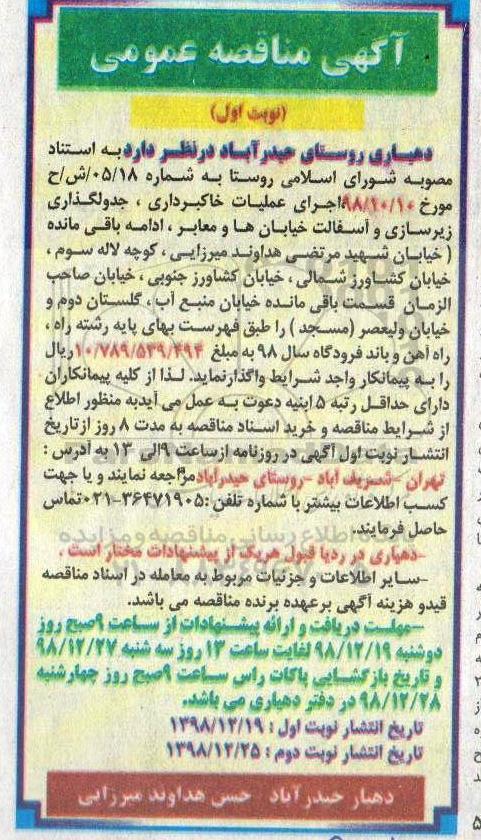 آگهی مناقصه عمومی
(نوبت اول)
دهیاری روستای حیدرآباد درنظر دارد به استناد
مصوبه شورای اسلامی روستا به شماره ۰۵/۱۸/ش/ح
مورخ ۹۸/۱۰/۱۰ اجرای عملیات خاکبرداری ، جدولگذاری
زیرسازی و آسفالت خیابان ها و معابر ، ادامه باقی مانده
( خیابان شهید مرتضی هداوند میرزایی ، کوچه لاله سوم ،
خیابان کشاورز شمالی ، خیابان کشاورز جنوبی ، خیابان صاحب
الزمان قسمت باقی مانده خیابان منبع آب ، گلستان دوم و
خیابان ولیعصر (مسجد ) را طبق فهرست بهای پایه رشته راه ،
راه آهن و باند فرودگاه سال ۹۸ به مبلغ ۱۰/۷۸۹/۵۳۹/۴۹۴ ریال
را به پیمانکار واجد شرایط واگذارنماید. لذا از کلیه پیمانکاران
دارای حداقل رتبه ۵ ابنیه دعوت به عمل می آیدبه منظور اطلاع
از شرایط مناقصه و خرید اسناد مناقصه به مدت ۸ روز ازتاریخ
انتشار نوبت اول آگهی در روزنامه ازساعت ۹الی ۱۳ به آدرس :
تهران -شریف آباد -روستای حیدرآبادمراجعه نمایند و یا جهت
کسب اطلاعات بیشتر با شماره تلفن :۳۶۴۷۱۹۰۵-۰۲۱تماس
حاصل فرمایند.
-دهیاری در ردیا قبول هریک از پیشنهادات مختار است .
-سایر اطلاعات و جزئیات مربوط به معامله در اسناد مناقصه
قیدو هزینه آگهی برعهده برنده مناقصه می باشد.
-مهلت دریافت و ارائه پیشنهادات از ساعت ۹صبح روز
دوشنبه ۹۸/۱۲/۱۹ لغایت ساعت ۱۳ روز سه شنبه ۹۸/۱۲/۲۷
و تاریخ بازگشایی پاکات راس ساعت ۹صبح روز چهارشنبه
۹۸/۱۲/۲۸ در دفتر دهیاری می باشد.
تاریخ انتشار نوبت اول : ۱۳۹۸/۱۲/۱۹
تاریخ انتشار نوبت دوم : ۱۳۹۸/۱۲/۲۵
دهیار حیدرآباد حسن هداوند میرزایی